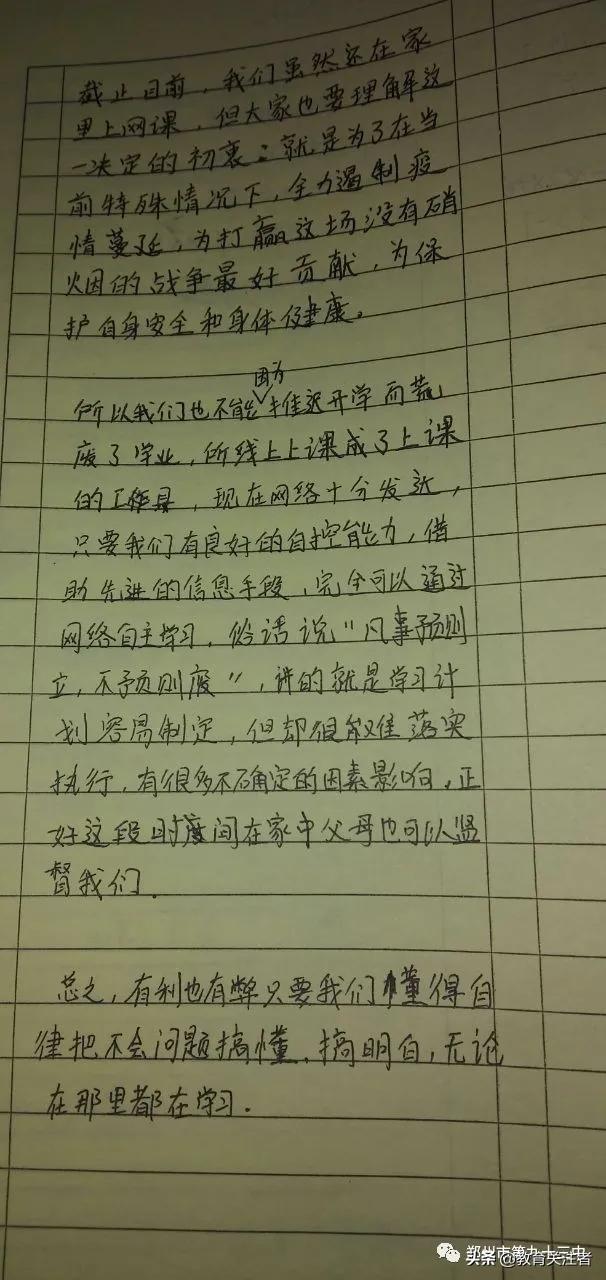 截止目前，我们虽然还在家
里上网课，但大家也要理解这
一决定的初衷：就是为了在当
前特殊情况下，全力遏制疫
情蔓延，为打赢这场没有硝
烟的战争最好贡献，为保
护自身安全和身体健康。
因为
所以我们也不能推迟开学而荒
废了学业，所线上上课成了上课
的工具，现在网络十分发达，
只要我们有良好的自控能力，借
助先进的信息手段，完全可以通过
网络自主学习，俗话说"凡事预则
立，不预则废"，讲的就是学习计
划容易制定，但却很难落实
执行，有很多不确定的因素影响，正
好这段时间在家中父母也可以监
督我们.
总之，有利也有弊只要我们懂得自
律把不会问题搞懂、搞明白，无论
在那里都在学习.
郑州市第九十三中
头条 @教育关注者